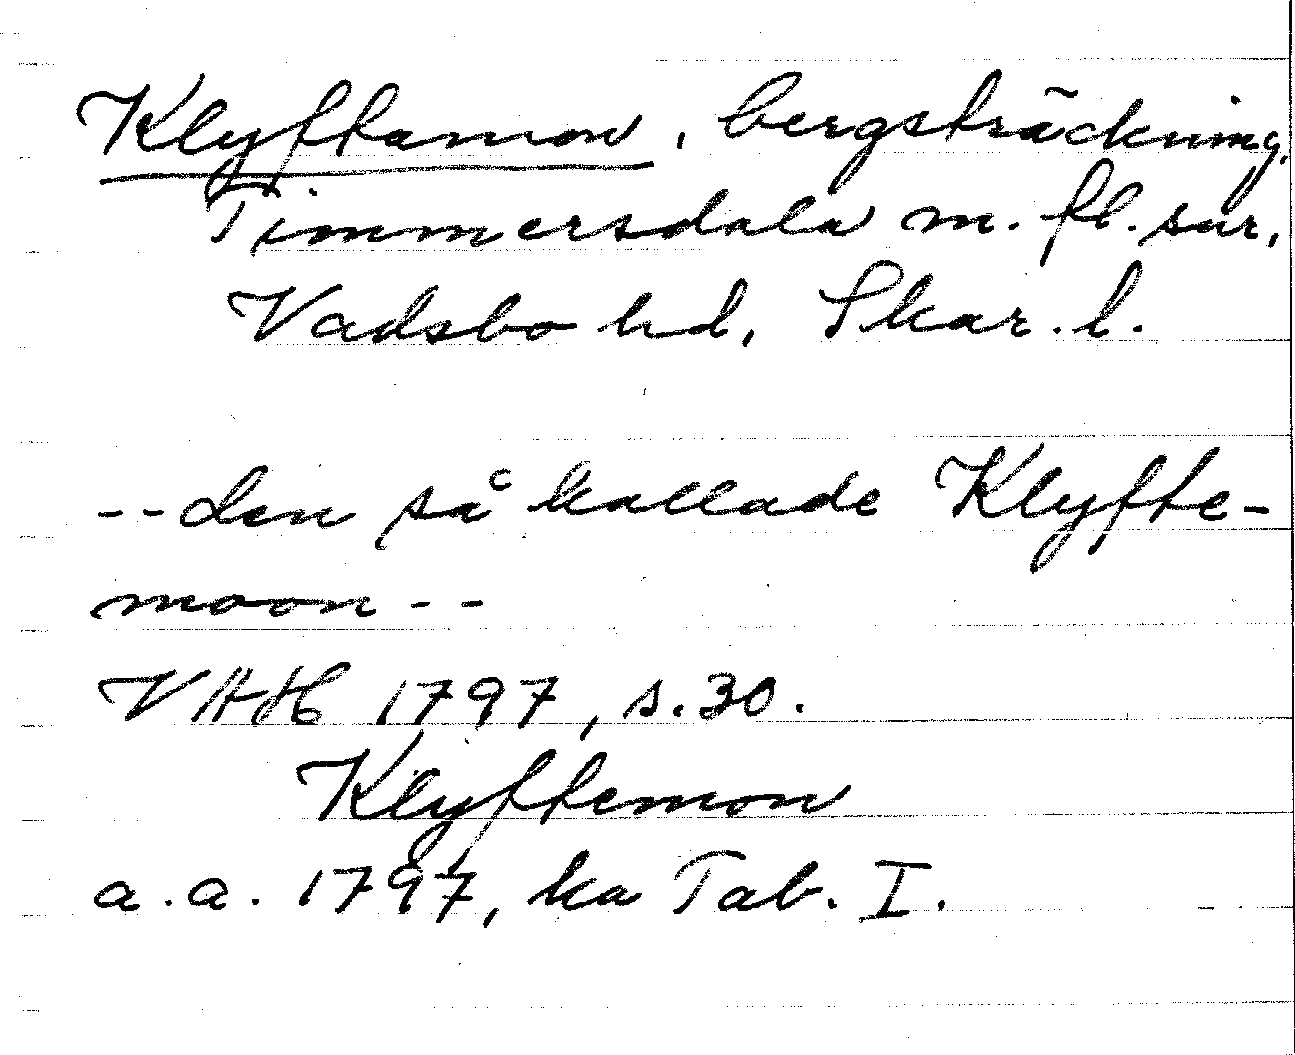 Klyftamon, bergsträckning,
Timmersdala m. fl. snr,
Vadsbo hd, Skar. l.
--den så kallade Klyfte-
moon--
VAH 1797, s. 30.
Klyftemon
a. a. 1797, ka Tab. I.